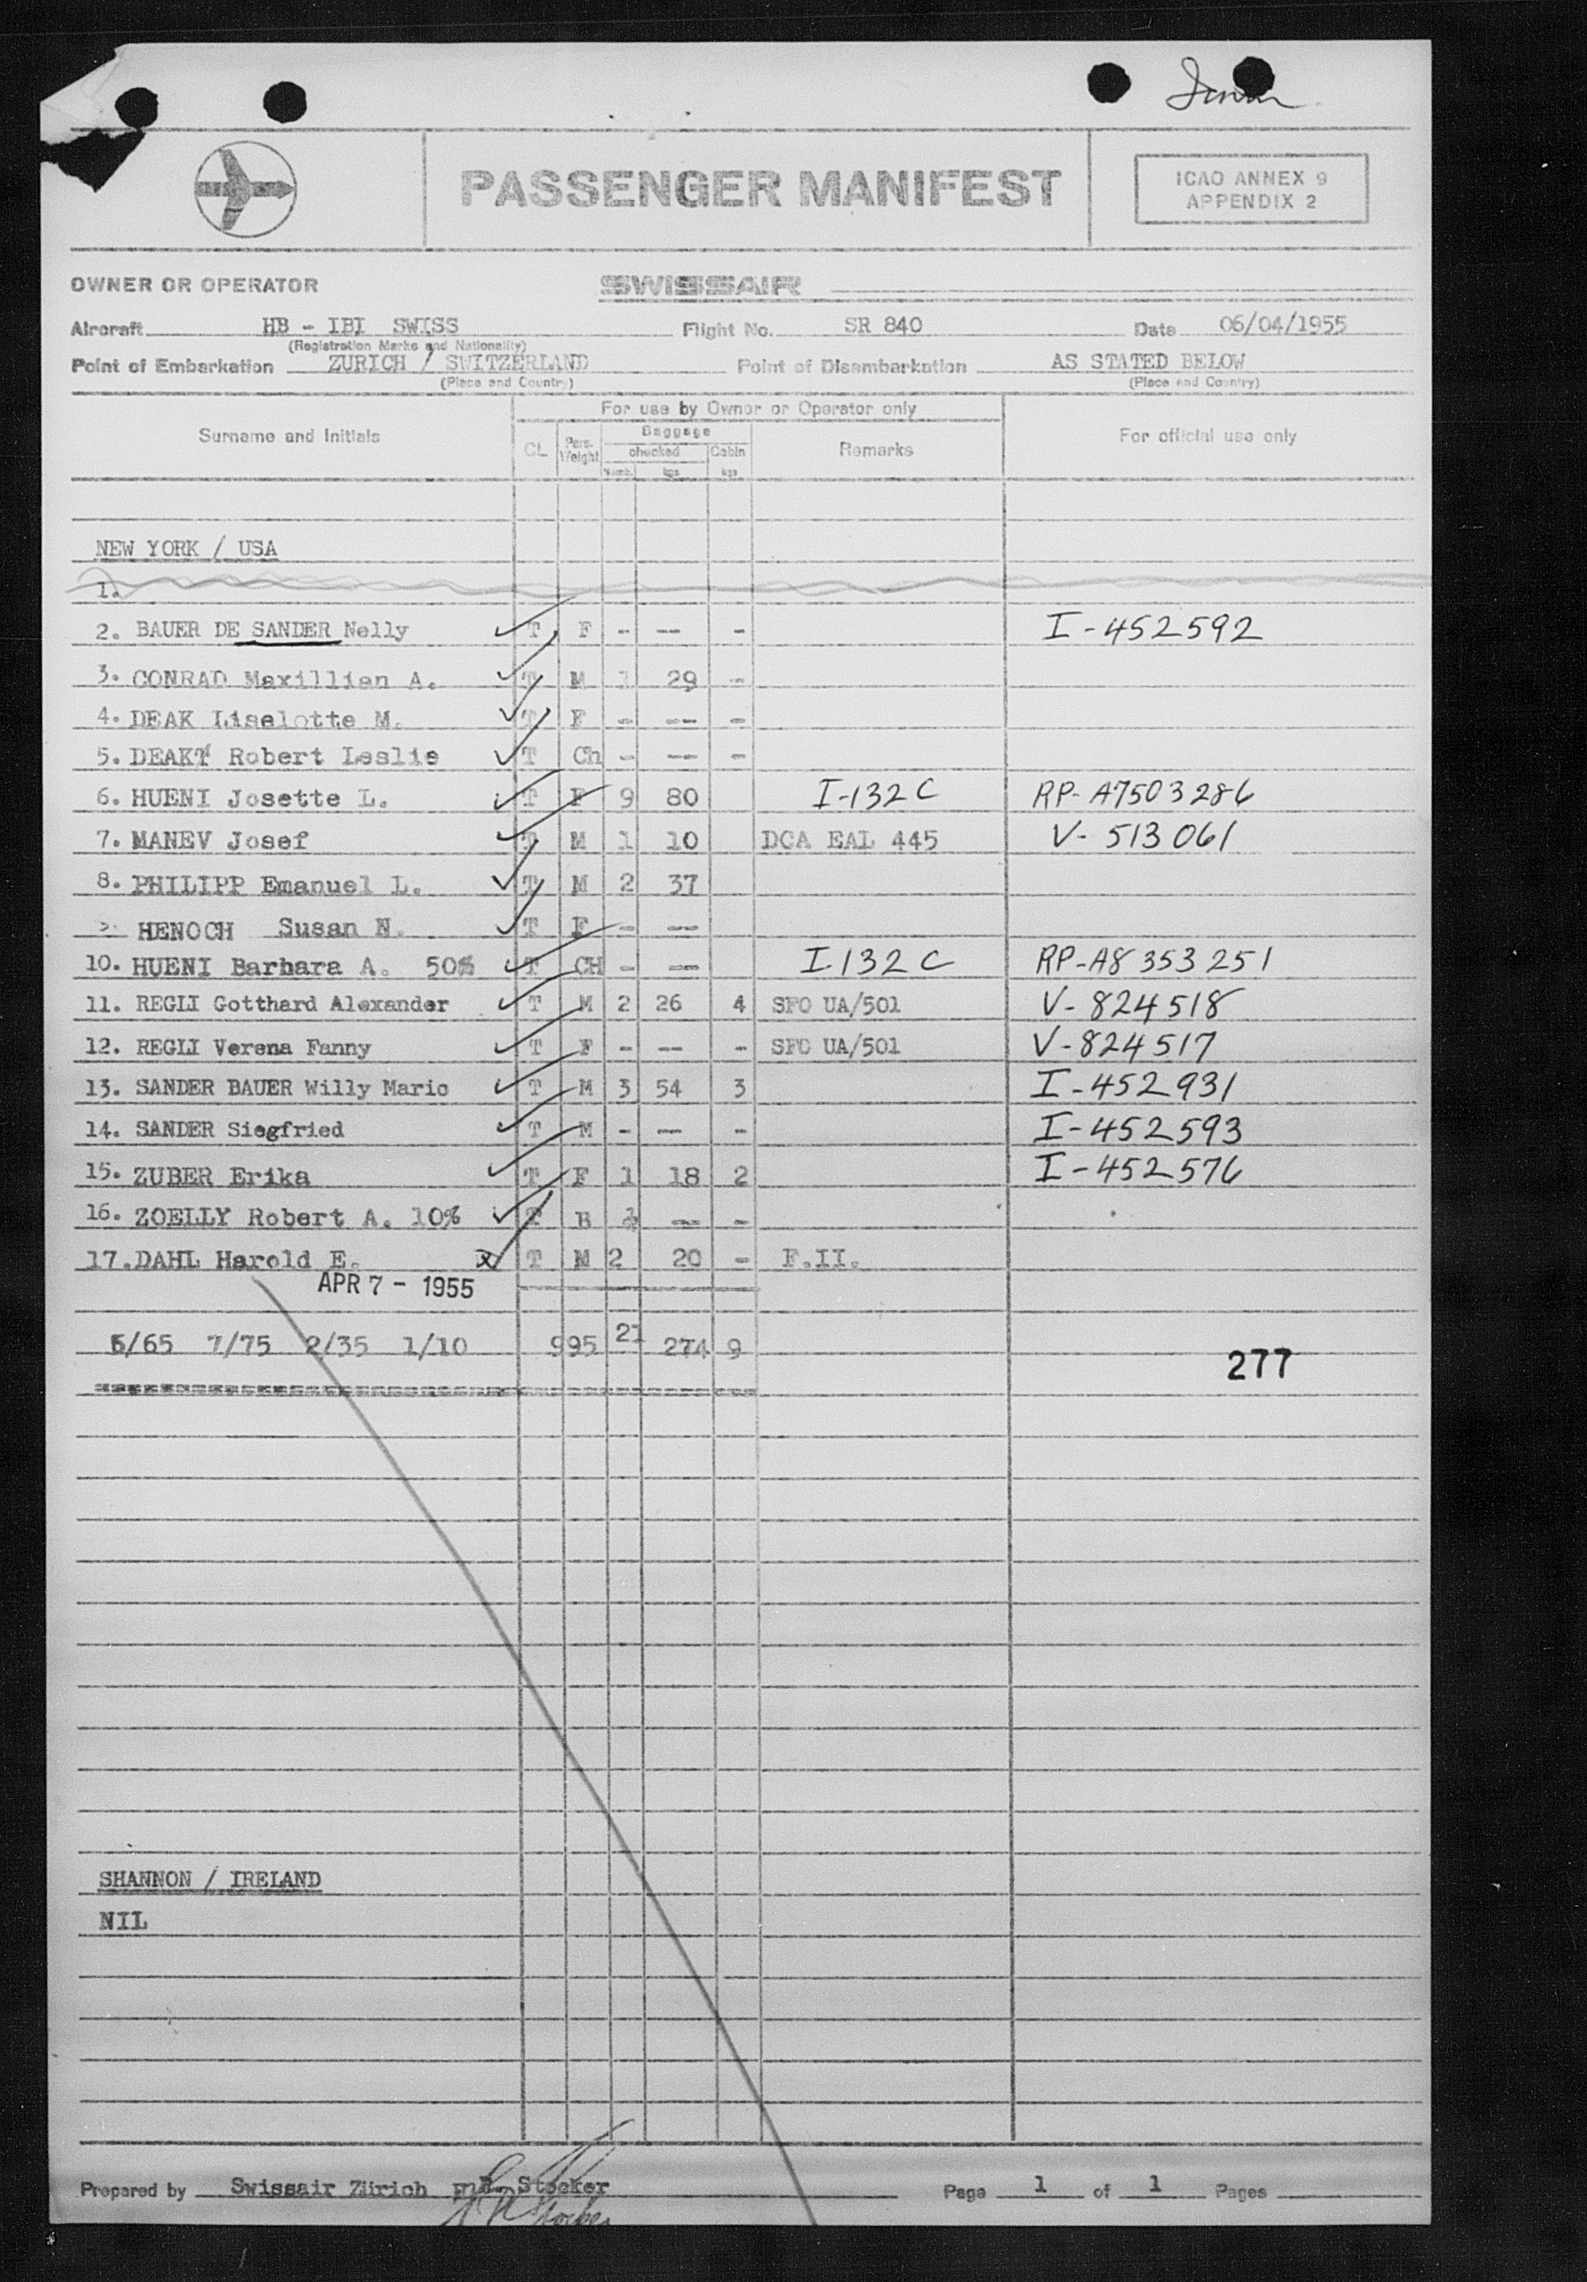 PASSENGER MANIFEST
ICAO ANNEX 9
APPENDIX 2
OWNER OR OPERATOR SWISSAIR
Aircraft HB - IBI SWISS Flight No. SR 840 Date 06/04/1955
(Registration Marks and Nationality)
Point of Embarkation ZURICH / SWITZERLAND Point of Disembarkation AS STATED BELOW
(Place and Country) (Place and Country)
For use by Owner or Operator only
Surname and Initials CL Pers. Weight Baggage Remarks For official use only
checked Cabin
Numb. kgs kgs
NEW YORK / USA
1.
2. BAUER DE SANDER Nelly T F - -- - I-452592
3. CONRAD Maxillian A. T M 1 29 -
4. DEAK Liselotte M. T F - -- -
5. DEAKT Robert Leslie T Ch - -- -
6. HUENI Josette L. T F 9 80 I-132C RP-A7503286
7. MANEV Josef T M 1 10 DCA EAL 445 V-513061
8. PHILIPP Emanuel L. T M 2 37
HENOCH Susan N. T F - --
10. HUENI Barbara A. 50% T CH - -- I-132C RP-A8353251
11. REGLI Gotthard Alexander T M 2 26 4 SFO UA/501 V-824518
12. REGLI Verena Fanny T F - -- - SFO UA/501 V-824517
13. SANDER BAUER Willy Mario T M 3 54 3 I-452931
14. SANDER Siegfried T M - -- - I-452593
15. ZUBER Erika T F 1 18 2 I-452576
16. ZOELLY Robert A. 10% T B -- -
17. DAHL Harold E. T M 2 20 - F.II.
APR 7 - 1955
6/65 7/75 2/35 1/10 995 21 274 9
277
SHANNON / IRELAND
NIL
Prepared by Swissair Zürich Stocker Page 1 of 1 Pages